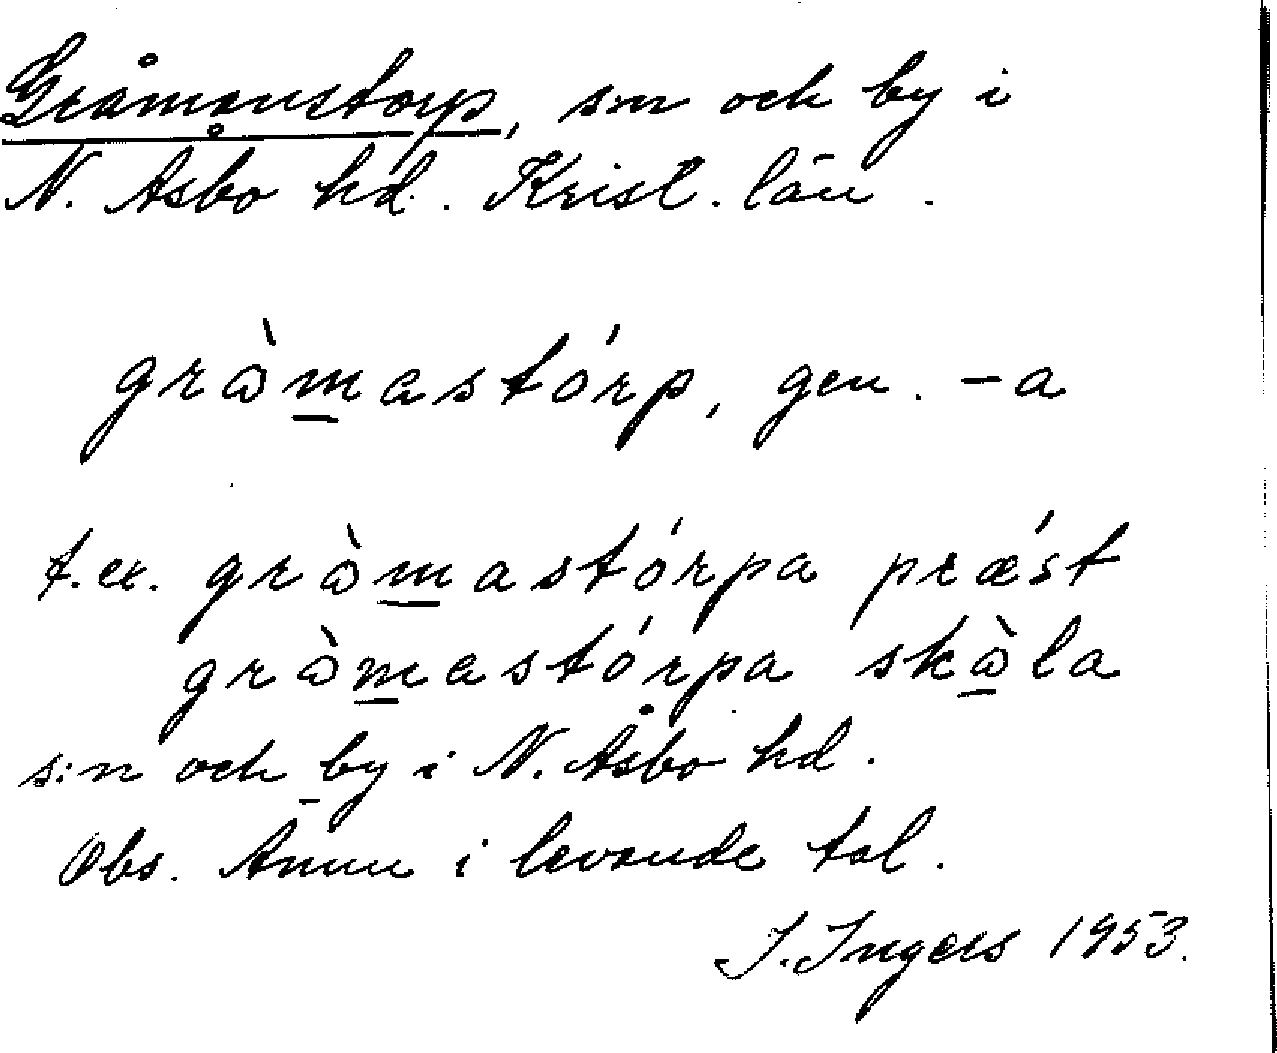 Gråmanstorp, sn och by i
N. Åsbo hd. Krist. län.
grὰmastórp, gen. -a
t.ex. grὰmastórpa præ´st
grὰmastórpa skὰla
s:n och by i N. Åsbo hd.
Obs. Ännu i levande tal.
I. Ingers 1953.